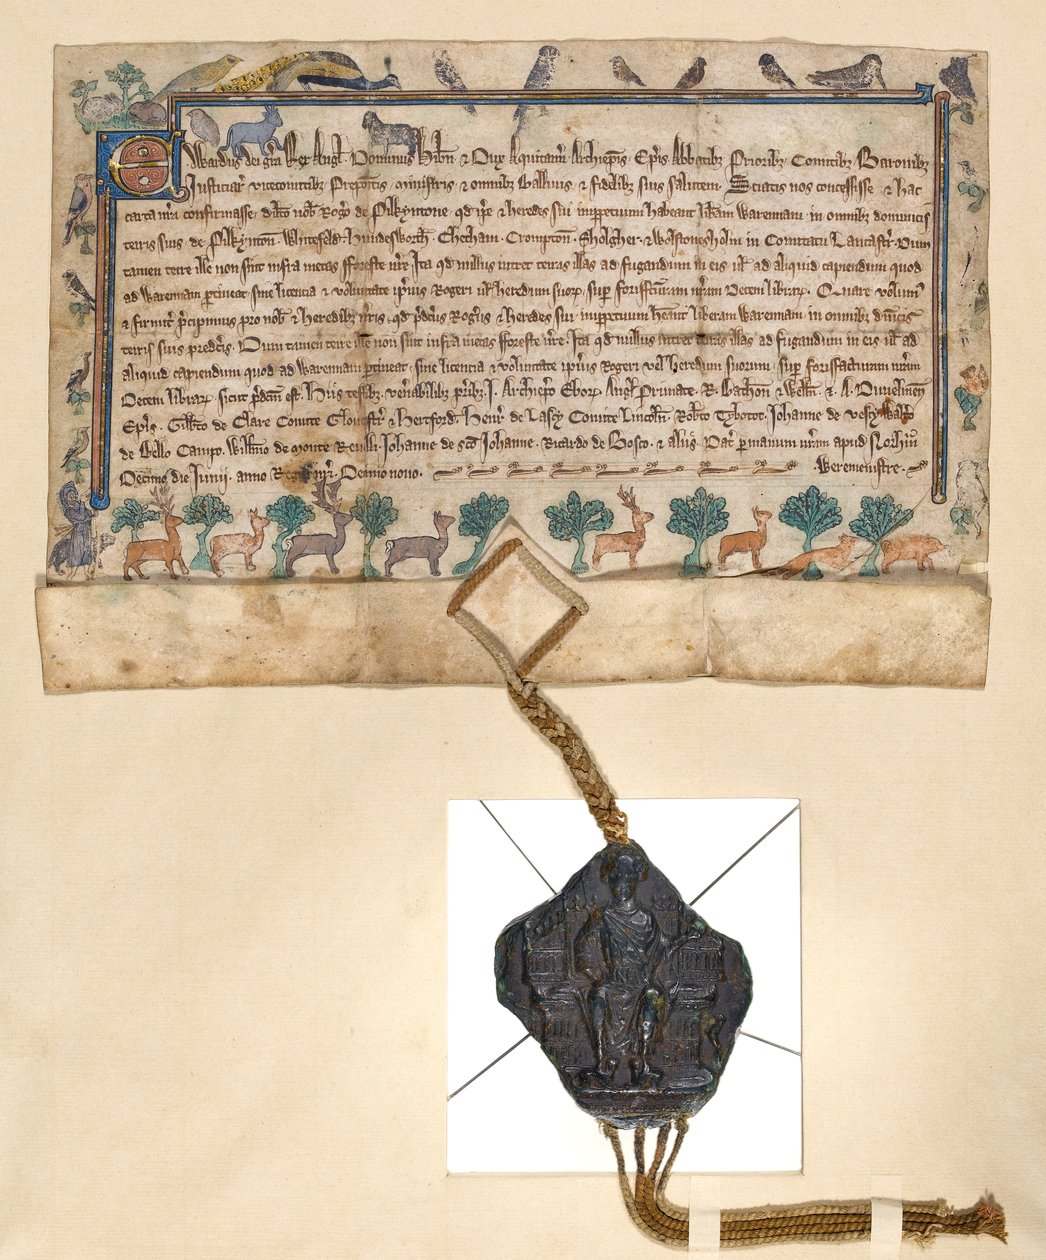 Edwardus dei gr̃a Rex Angl̃. Dominus Hib̃n ⁊ Dux Aquitann̄. Archiep̄is. Ep̄is. Abbatib₃ Priorib₃ Comitib₃ Baronib₃
Justiciar̃ vicecomitib₃ Prepositis ministris ⁊ omnib₃ Ballivis ⁊ fidelib₃ suis salutem. Sciatis nos concessisse ⁊ hac
carta nr̃a confirmasse. dil̃co nob̃ Rog̃o de Pilkyntone. qd̃ ip̃e ⁊ heredes sui inppetuum habeant lib̃am warennam in omnib₃ dominicis
terris suis de Pilkynton̄. Whitefeld. Undesworth̃. Chetham. Crompton̄. Sholgher. ⁊ Wolstonesholm in Comitatu Lancastr̃. Dum
tamen terre ille non sint infra metas fforeste nr̃e. Ita qd̃ nullus intret terras illas ad fugandum in eis ul̃ ad aliquid capiendum quod
ad Warennam ptineat. sine licentia ⁊ voluntate ip̃ius Rogeri ul̃ heredum suorꝝ. sup̃ forisf̃curam nr̃am Decem librarꝝ. Quare volum᷒
⁊ firmit̃ p̃cipimus pro nob̃ ⁊ heredib₃ nr̃is. qd̃ p̃dc̃us Rog̃us ⁊ heredes sui inppetuum h̃eant liberam Warennam in omnib₃ dn̄icis
terris suis predc̃is. Dum tamen terre ille non sint infra metas fforeste nr̃e. Ita qd̃ nullus intret terras illas ad fugandum in eis ul̃ ad
aliquid capiendum quod ad Warennam ptineat. sine licentia ⁊ voluntate ip̃ius Rogeri vel heredum suorum. sup̃ forisfacturam nr̃am
Decem librarꝝ sicut p̃dc̃m est. Hiis testib₃. ven̄abilib₃ p̃rib₃. J. Archiep̃o Ebor̃. Angl̃. Primate. R. Bathon̄ ⁊ Well̃n. ⁊. A. Dunelmen̄
Ep̃is. Gilb̃to de Clare Comite Gloucestr̃ ⁊ Hertford. Henr̃ de Lascy Comite Lincoln̄. Rob̃to Tybotot. Johanne de vescy.
de Bello Campo. Will̃mo de monte Revelli. Johanne de sc̃o Johanne. Ricardo de Bosco. ⁊ aliis. Dat̃ p manum nr̃am apud
Decimo die Junii. anno Regni nr̃i. Decimo nono. Weremenstre.